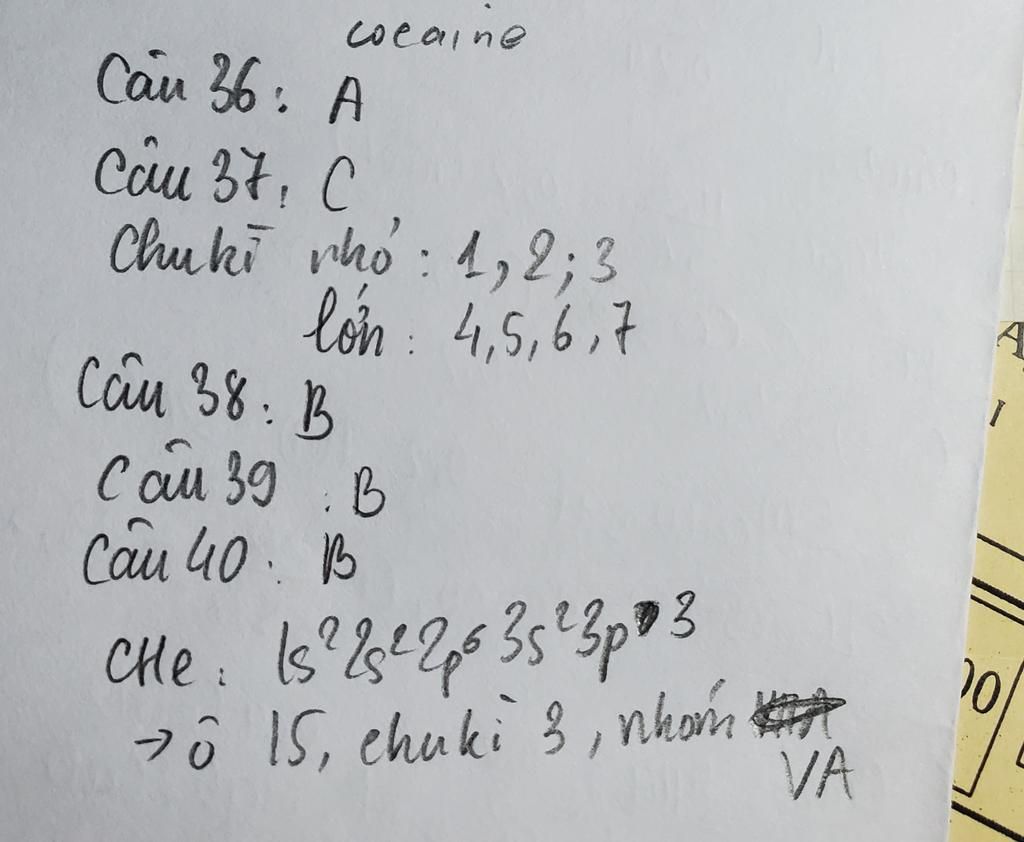 cocaine
Câu 36: A
Câu 37: C
Chu kì nhỏ: 1, 2; 3
lớn: 4, 5, 6, 7
Câu 38: B
Câu 39: B
Câu 40: B
CHe: 1s²2s²2p⁶3s²3p³
→ ô 15, chu kì 3, nhóm
VA
A
00